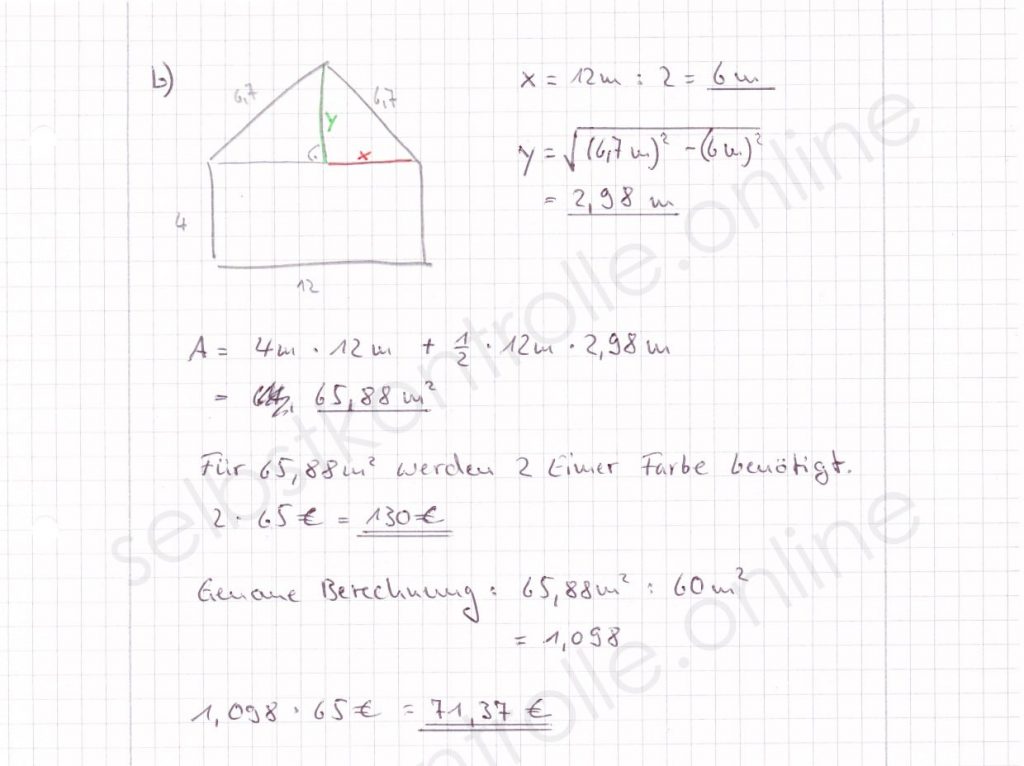 b)
x = 12m : 2 = 6m
6,7
6,7
y
x
y = √(6,7m)² - (6m)²
= 2,98 m
4
12
A = 4m · 12m + 1/2 · 12m · 2,98m
= 65,88 m²
Für 65,88m² werden 2 Eimer Farbe benötigt.
2 · 65€ = 130€
Genaue Berechnung: 65,88m² : 60m²
= 1,098
1,098 · 65€ = 71,37 €
selbstkontrolle.online
selbstkontrolle.online